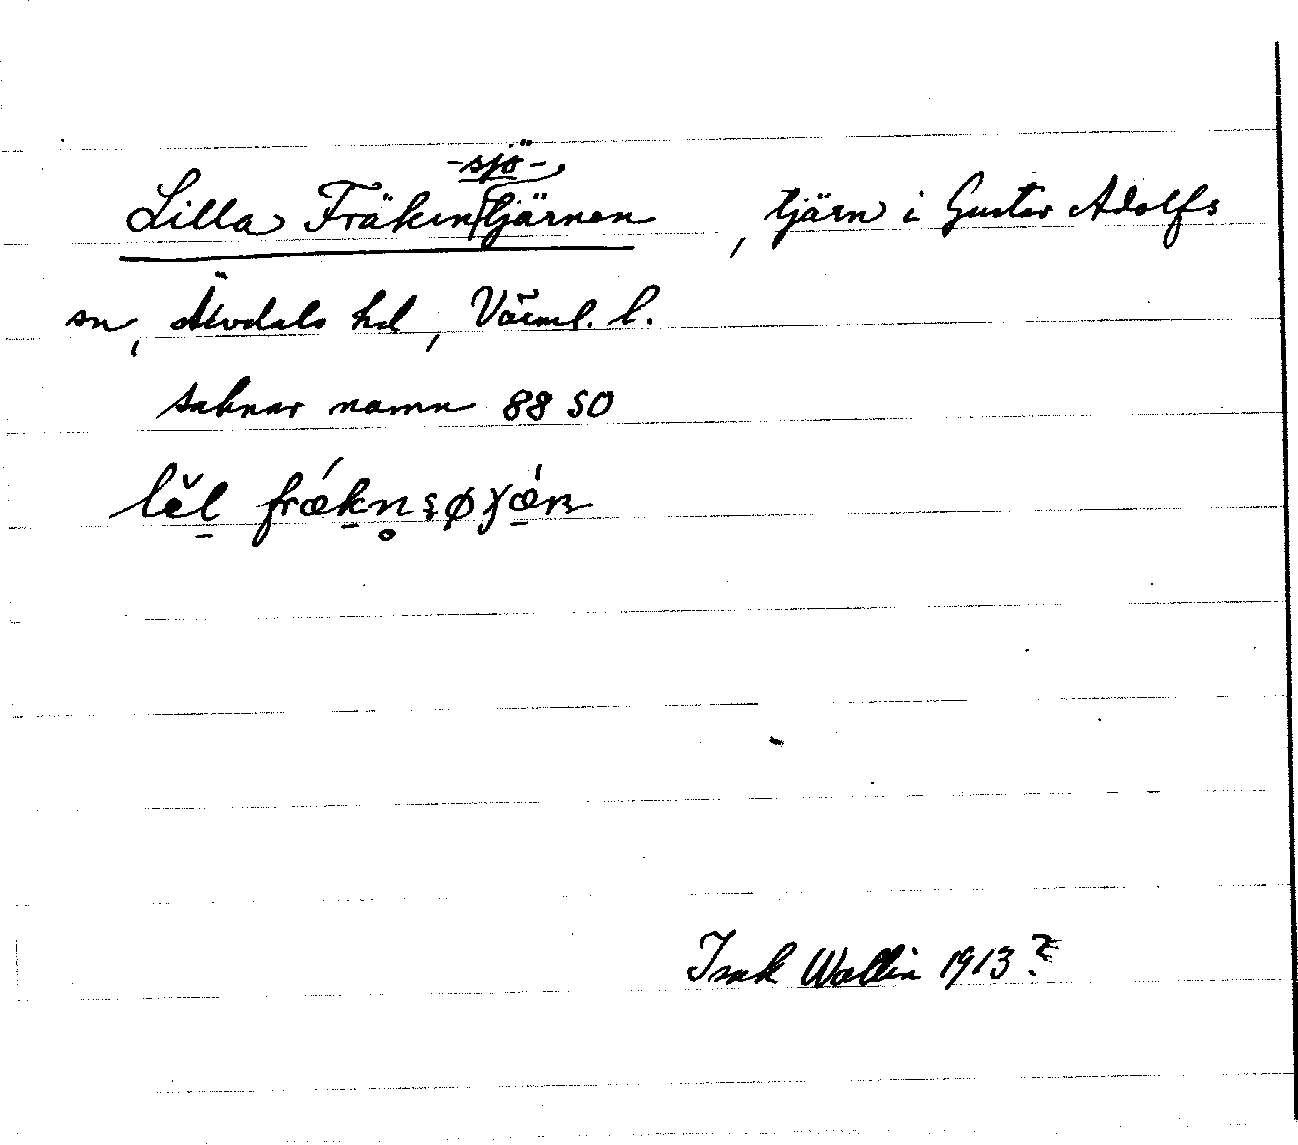 -sjö-
Lilla Fräkentjärnen, tjärn i Gustav Adolfs
sn, Älvdals hd, Värml. l.
saknar namn 88 SO
lĕl frǽkn̥søɣǽn
Isak Wallin 1913?